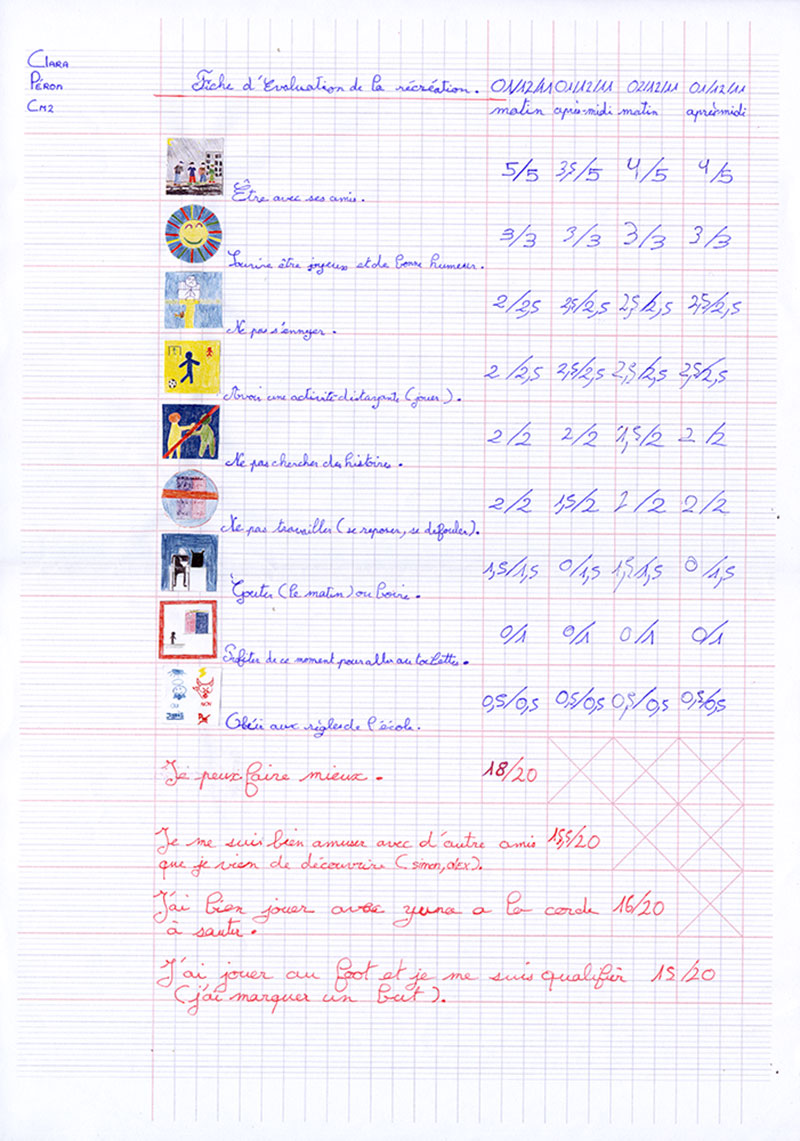 Clara
Péron
CM2
Fiche d'Evaluation de la récréation. 01/12/11 01/12/11 02/12/11 01/12/11
matin après-midi matin après-midi
Être avec ses amis. 5/5 3,5/5 4/5 4/5
Sourire être joyeux et de bonne humeur. 3/3 3/3 3/3 3/3
Ne pas s'ennuyer. 2/2,5 2,5/2,5 2,5/2,5 2,5/2,5
Avoir une activité distayante (jouer). 2/2,5 2,5/2,5 2,5/2,5 2,5/2,5
Ne pas chercher des histoires. 2/2 2/2 1,5/2 2/2
Ne pas travailler (se reposer, se défouler). 2/2 1,5/2 2/2 2/2
Gouter (le matin) ou boire. 1,5/1,5 0/1,5 1,5/1,5 0/1,5
Profiter de ce moment pour aller au toilettes. 0/1 0/1 0/1 0/1
OUI NON
Obéir aux règles de l'école. 0,5/0,5 0,5/0,5 0,5/0,5 0,5/0,5
Je peux faire mieux. 18/20
Je me suis bien amuser avec d'autre amis 15,5/20
que je vien de découvrire (simon, alex).
J'ai bien jouer avec yuna a la corde 16/20
à sauter.
J'ai jouer au foot et je me suis qualifier 15/20
(j'ai marquer un but).